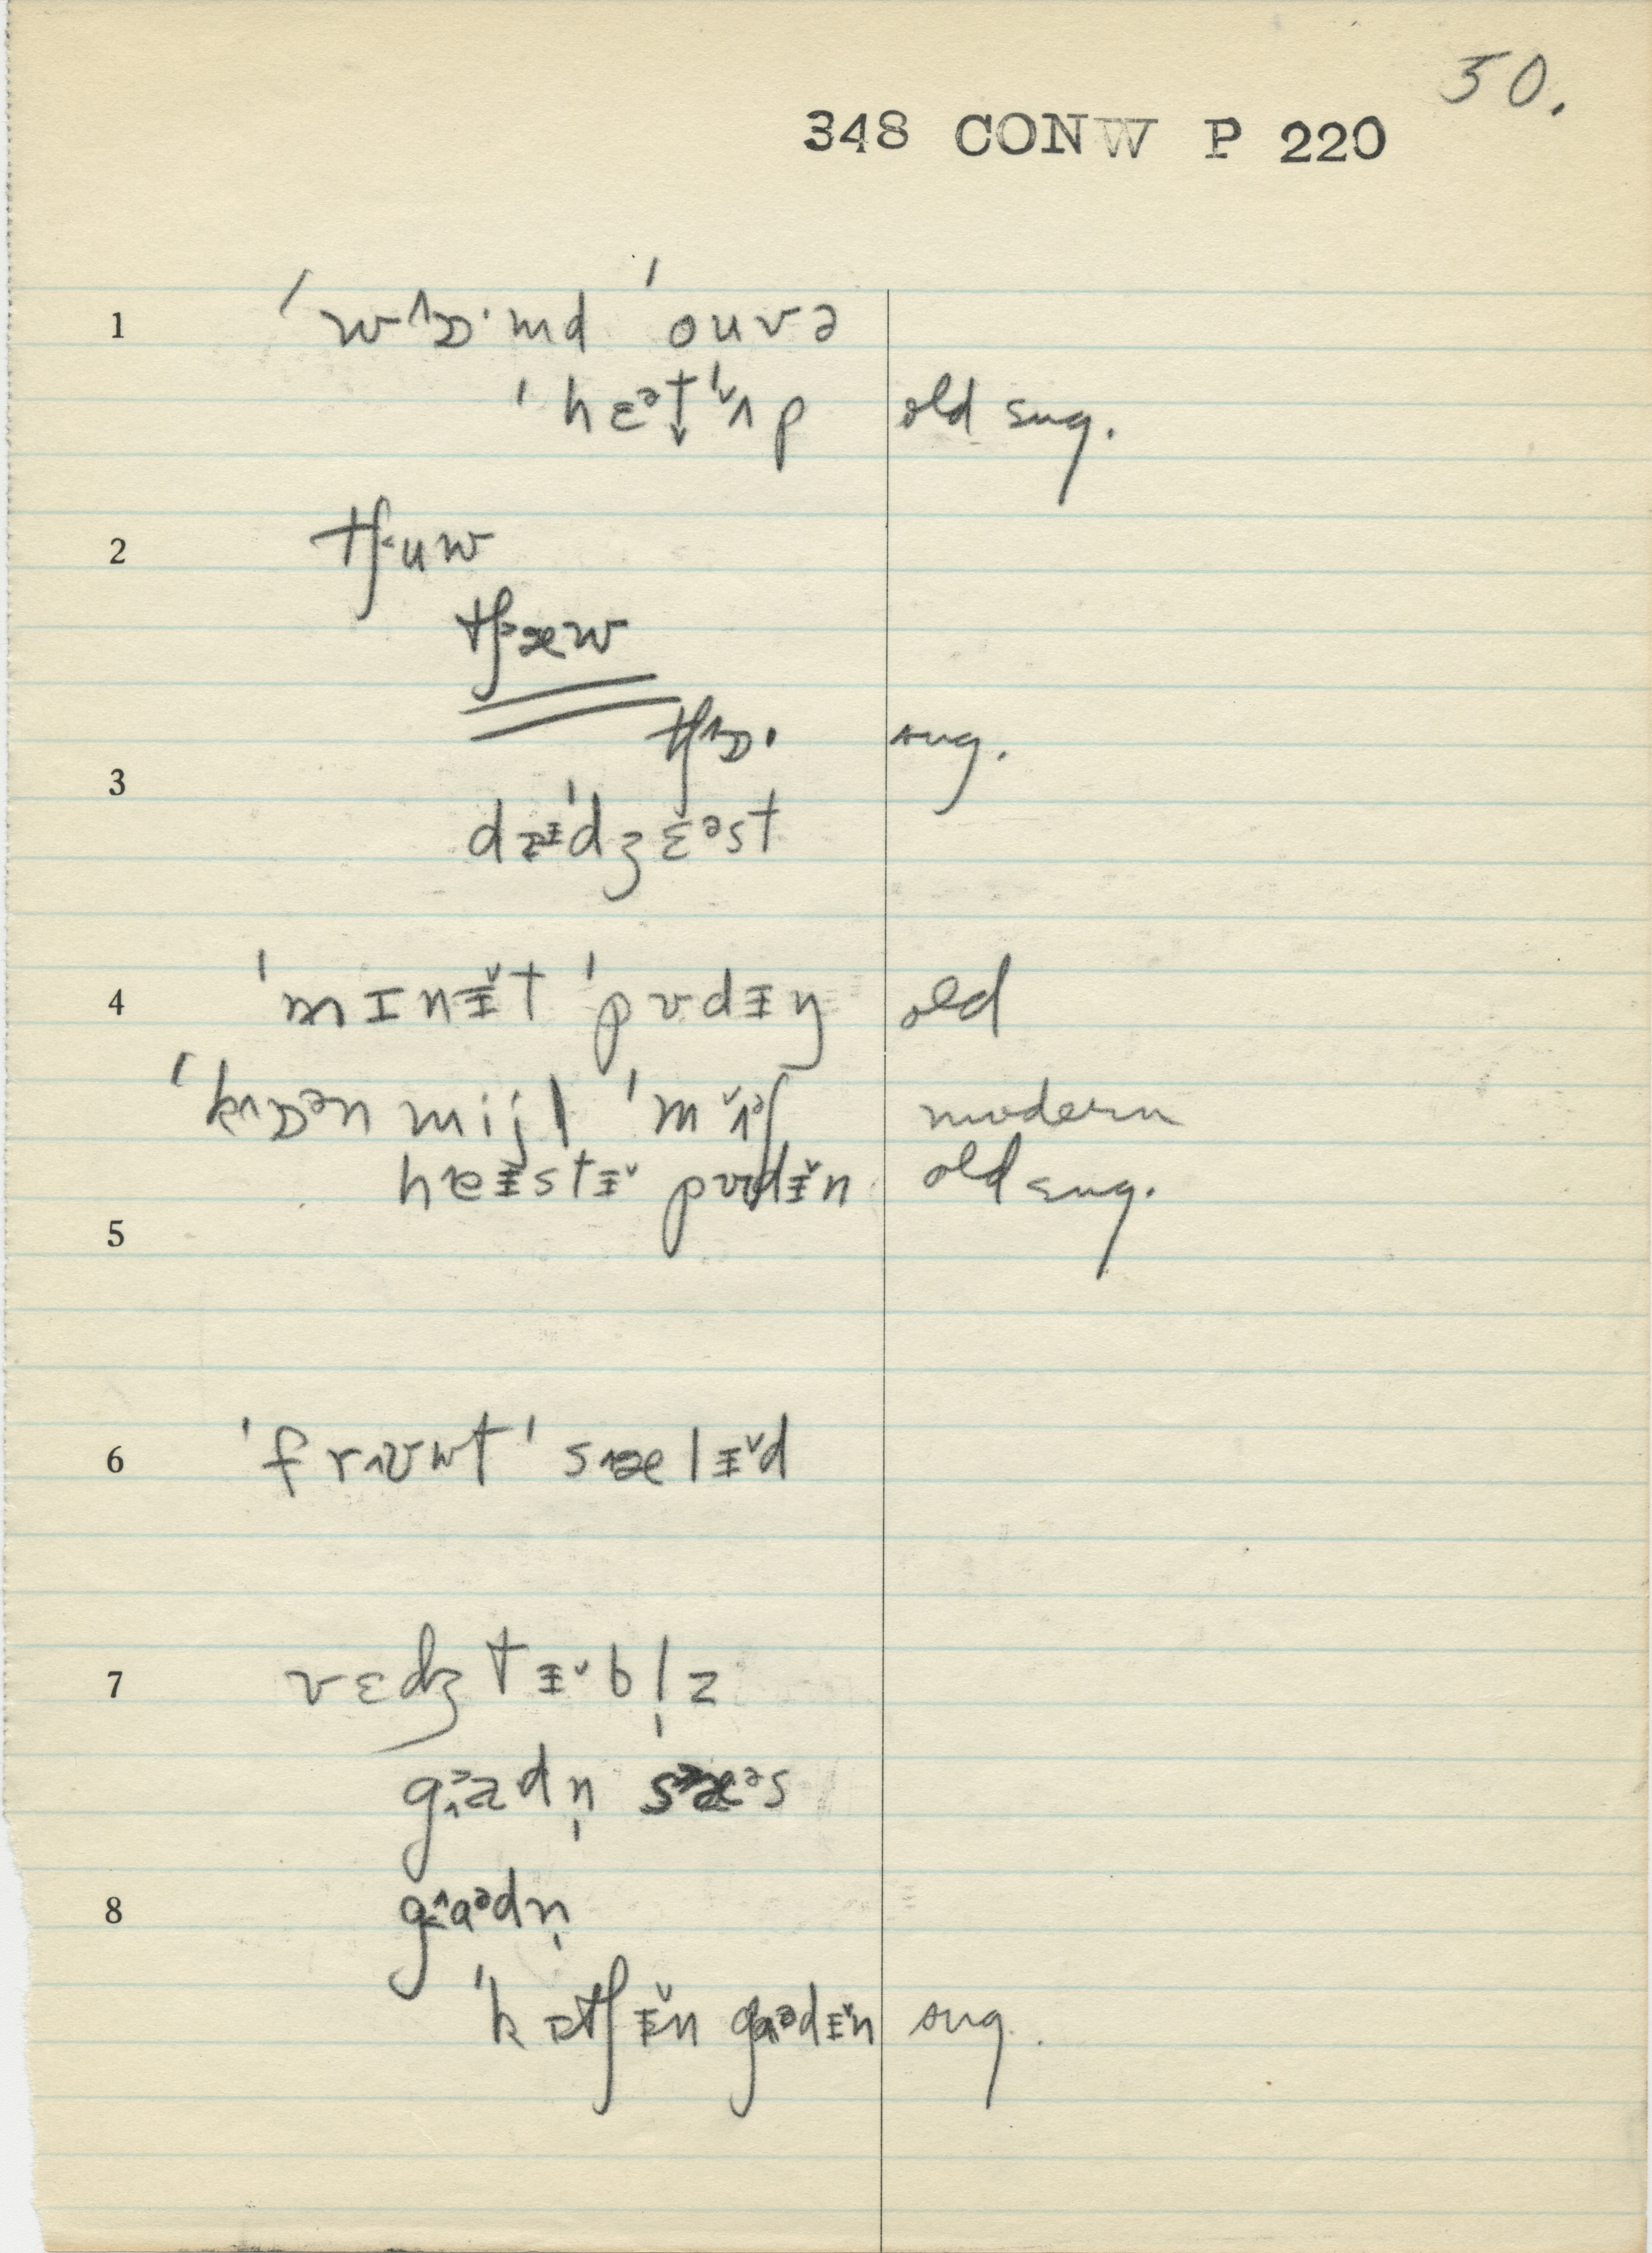 50.
348 CONW P 220
1 ˈwɒ·md ˈouvə
ˈhɛᵊt ˈʌp old sug.
2 tʃuw
tʃæw
tʃɒ· sug.
3 dɪˈdʒɛᵊst
4 ˈmɪnɨt ˈpʊdɪŋ old
ˈkɒᵊn mijl ˈmʌᵊʃ modern
heɨstɨ pʊdɨn old sug.
5
6 ˈfrʊwt ˈsælɨd
7 vɛdʒtɨbl̩z
gadn̩ sæᵊs
8 gaᵊdn̩
ˈkɪtʃɨn gaᵊdɨn sug.